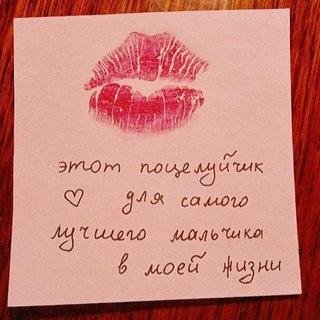 этот поцелуйчик
♡ для самого
лучшего мальчика
в моей жизни